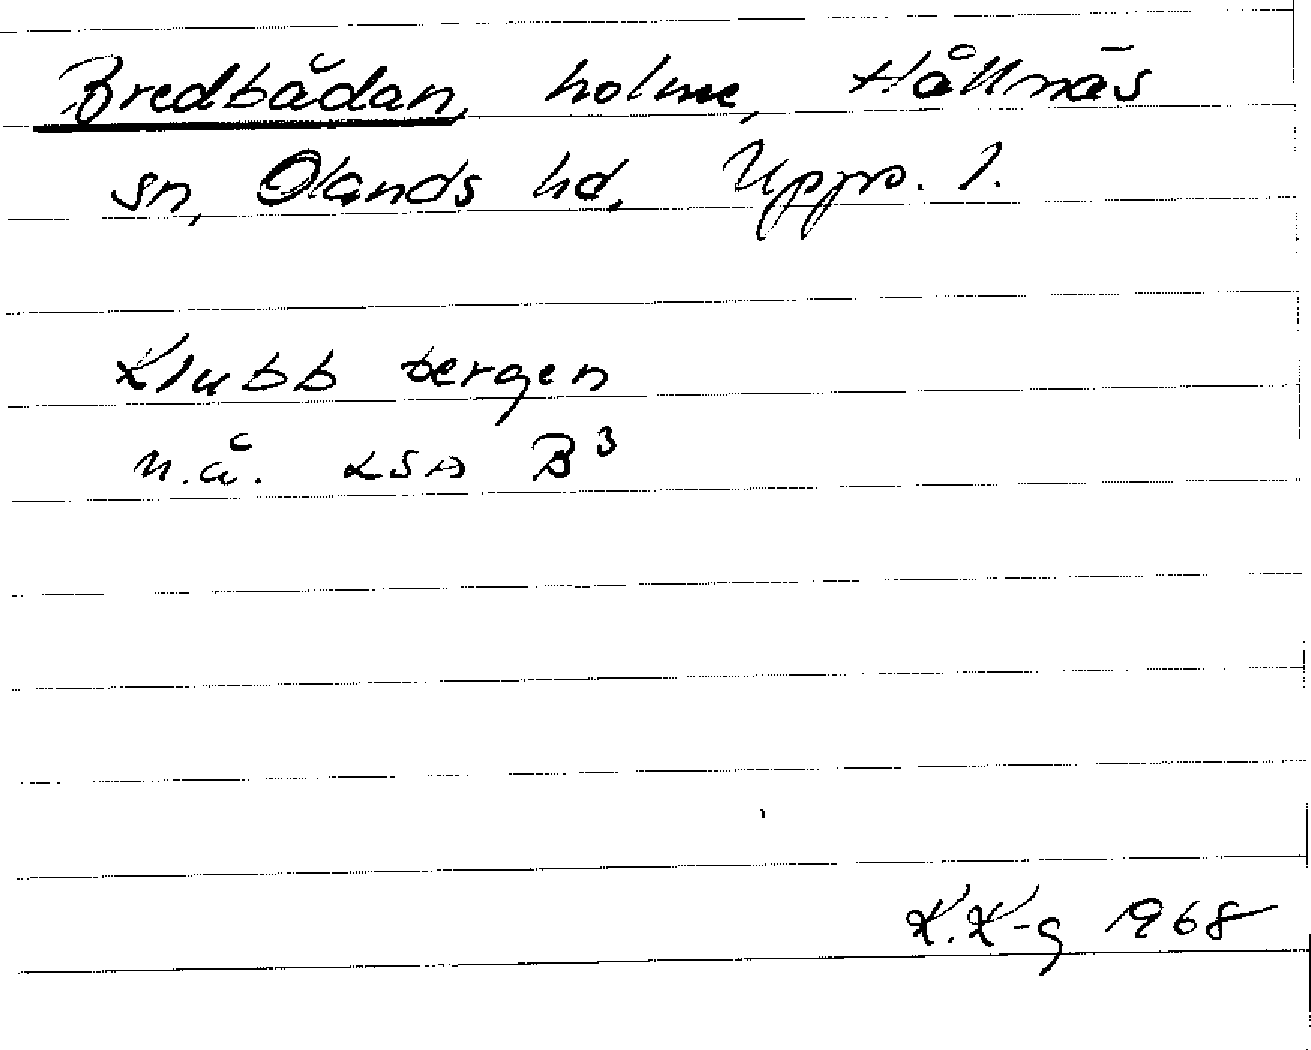 Bredbådan, holme, Hållnäs
sn, Olands hd, Upps. l.
Klubbbergen
n.å. LSA B³
K.K-g 1968